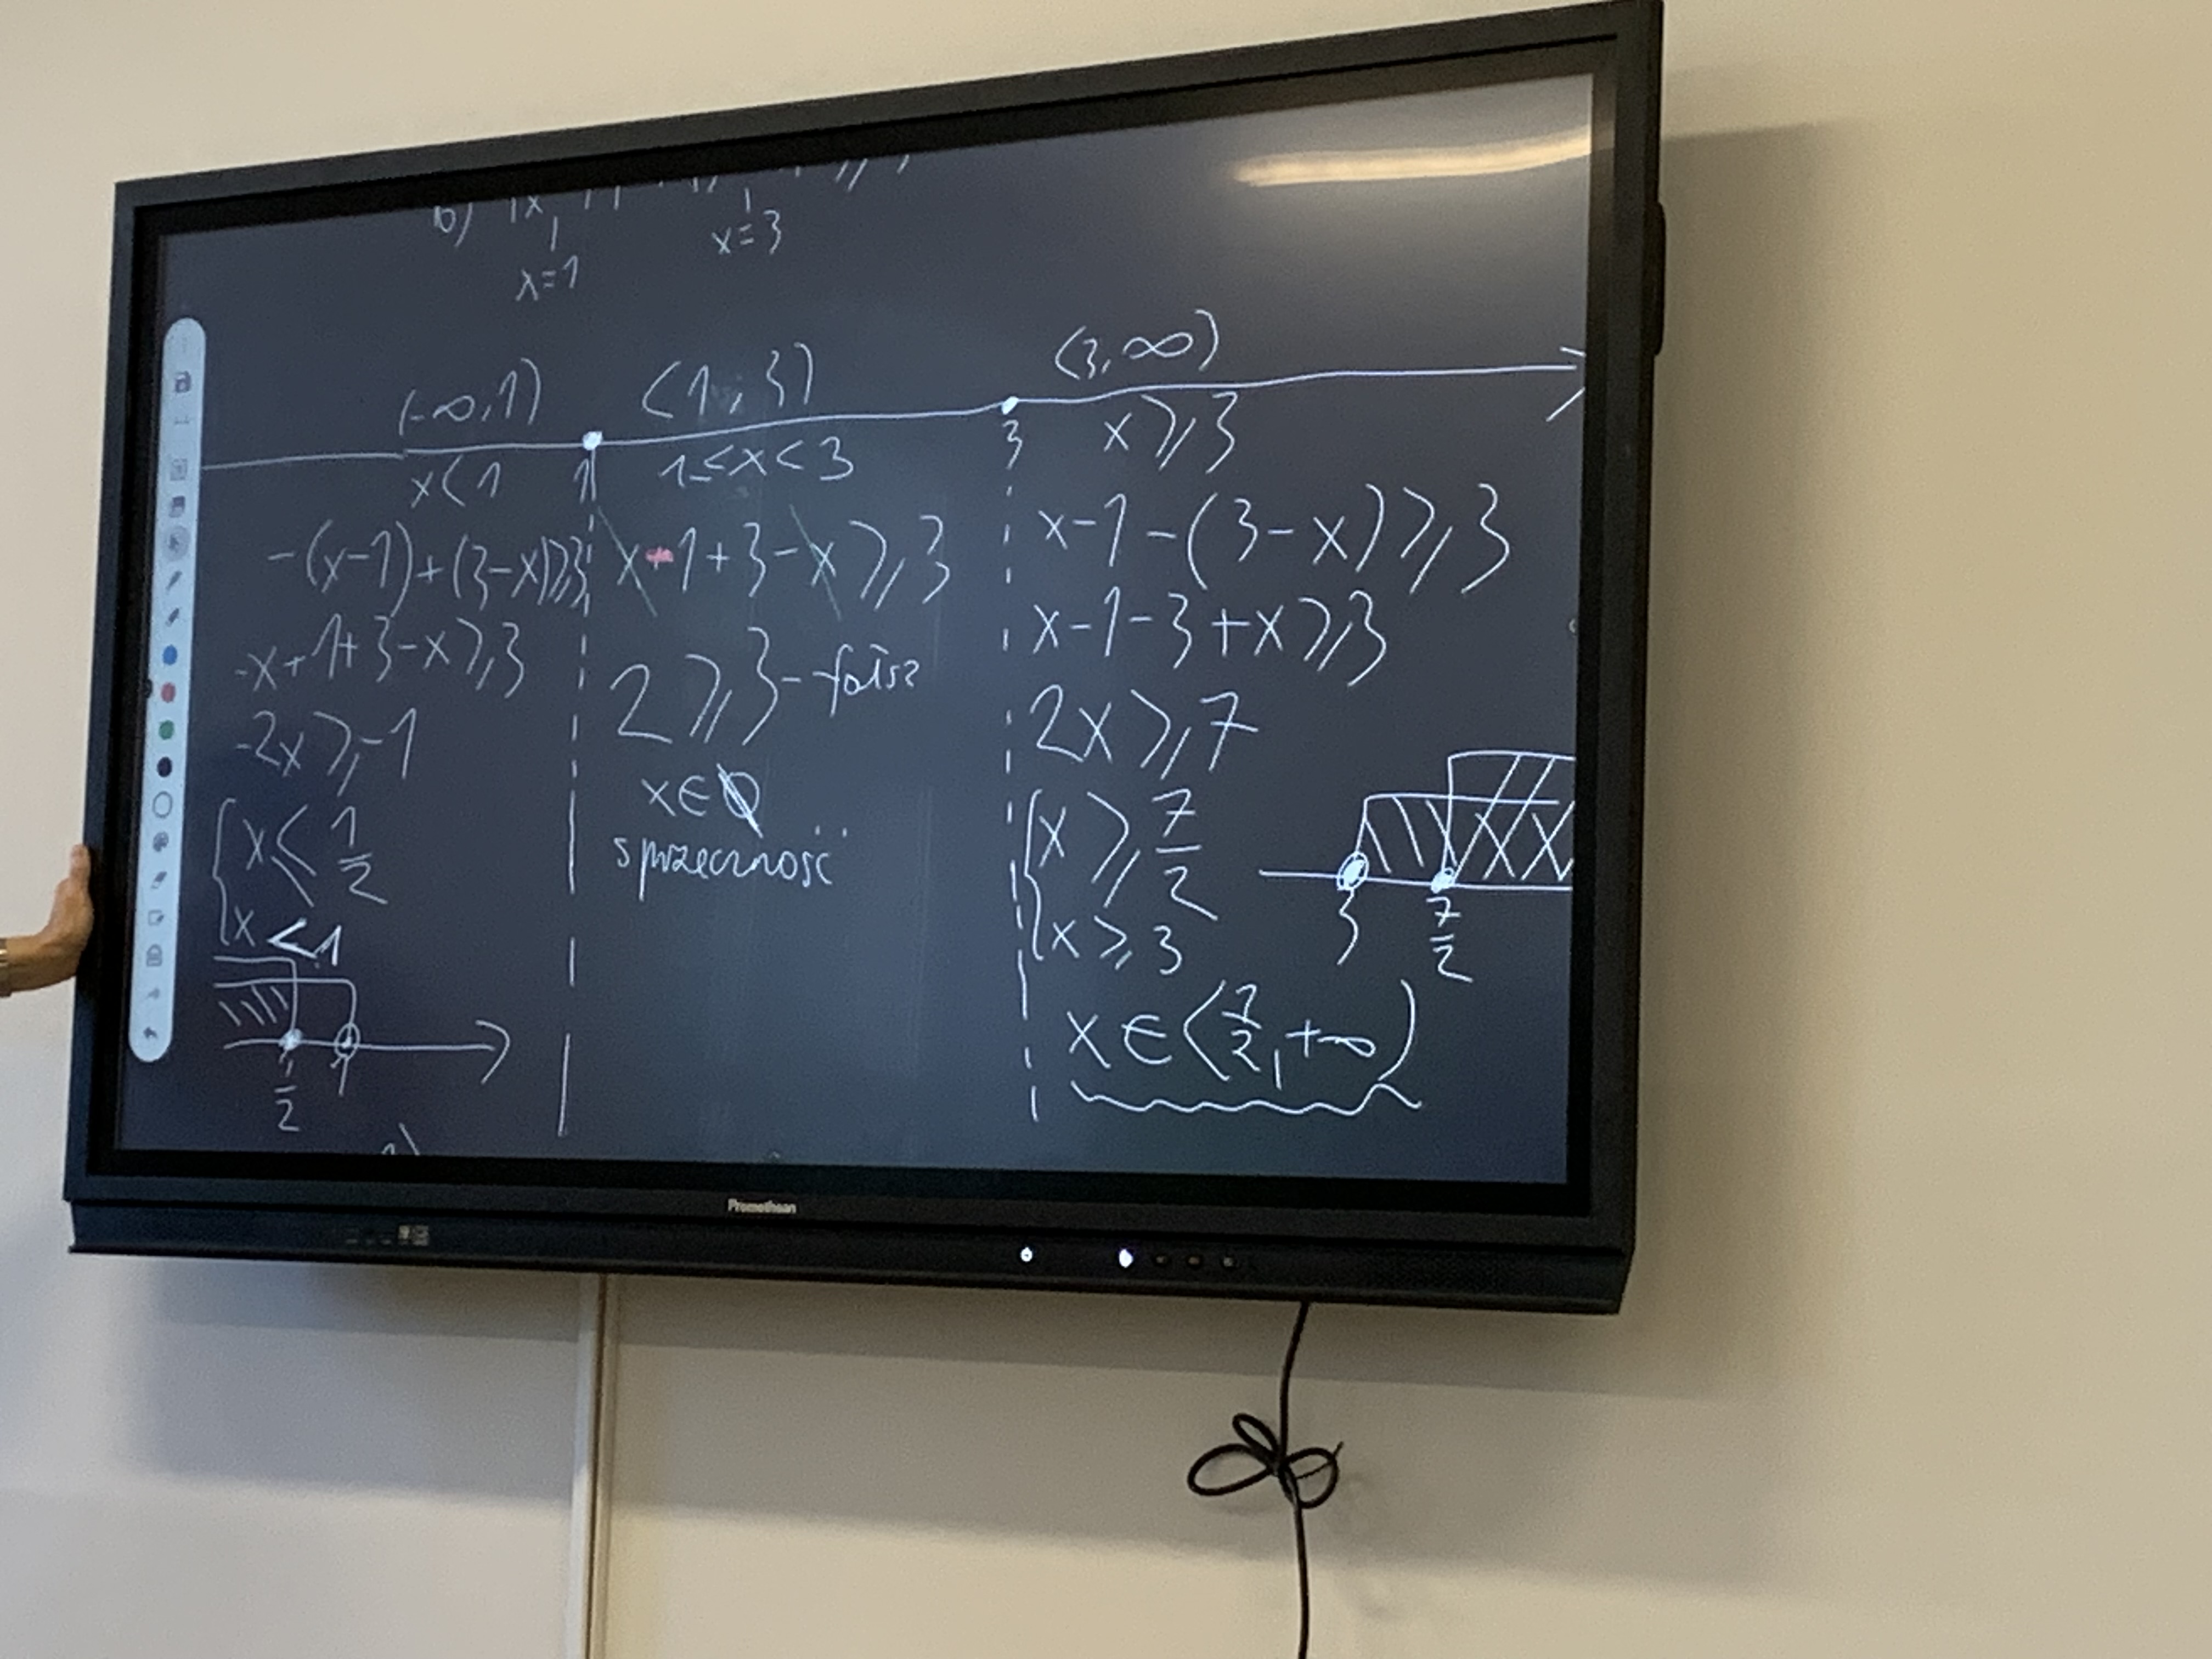 b) |x
x=1 x=3
(-∞,1) ⟨1,3) ⟨3,∞)
x<1 1 1≤x<3 3 x⩾3
-(x-1)+(3-x)⩾3
-x+1+3-x⩾3
-2x⩾-1
x≤1/2
x<1
1/2 1
x-1+3-x⩾3
2⩾3-fałsz
x∈∅
sprzeczność
x-1-(3-x)⩾3
x-1-3+x⩾3
2x⩾7
x⩾7/2
x⩾3
3 7/2
x∈⟨7/2,+∞)
Promethean